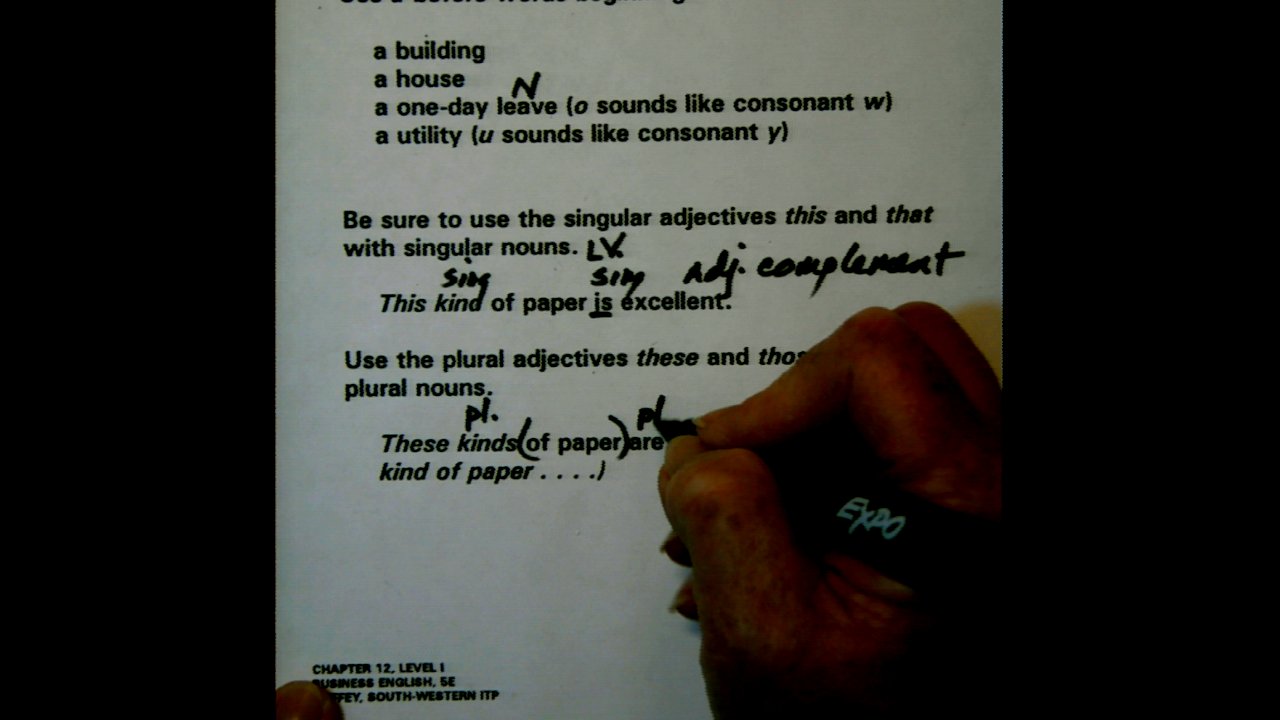 a building
a house
N
a one-day leave (o sounds like consonant w)
a utility (u sounds like consonant y)
Be sure to use the singular adjectives this and that
with singular nouns. LV.
sing sing adj. complement
This kind of paper is excellent.
Use the plural adjectives these and
plural nouns.
pl. pl
These kinds (of paper) are
kind of paper . . . .)
EXPO
CHAPTER 12, LEVEL I
BUSINESS ENGLISH, 5E
SOUTH-WESTERN ITP